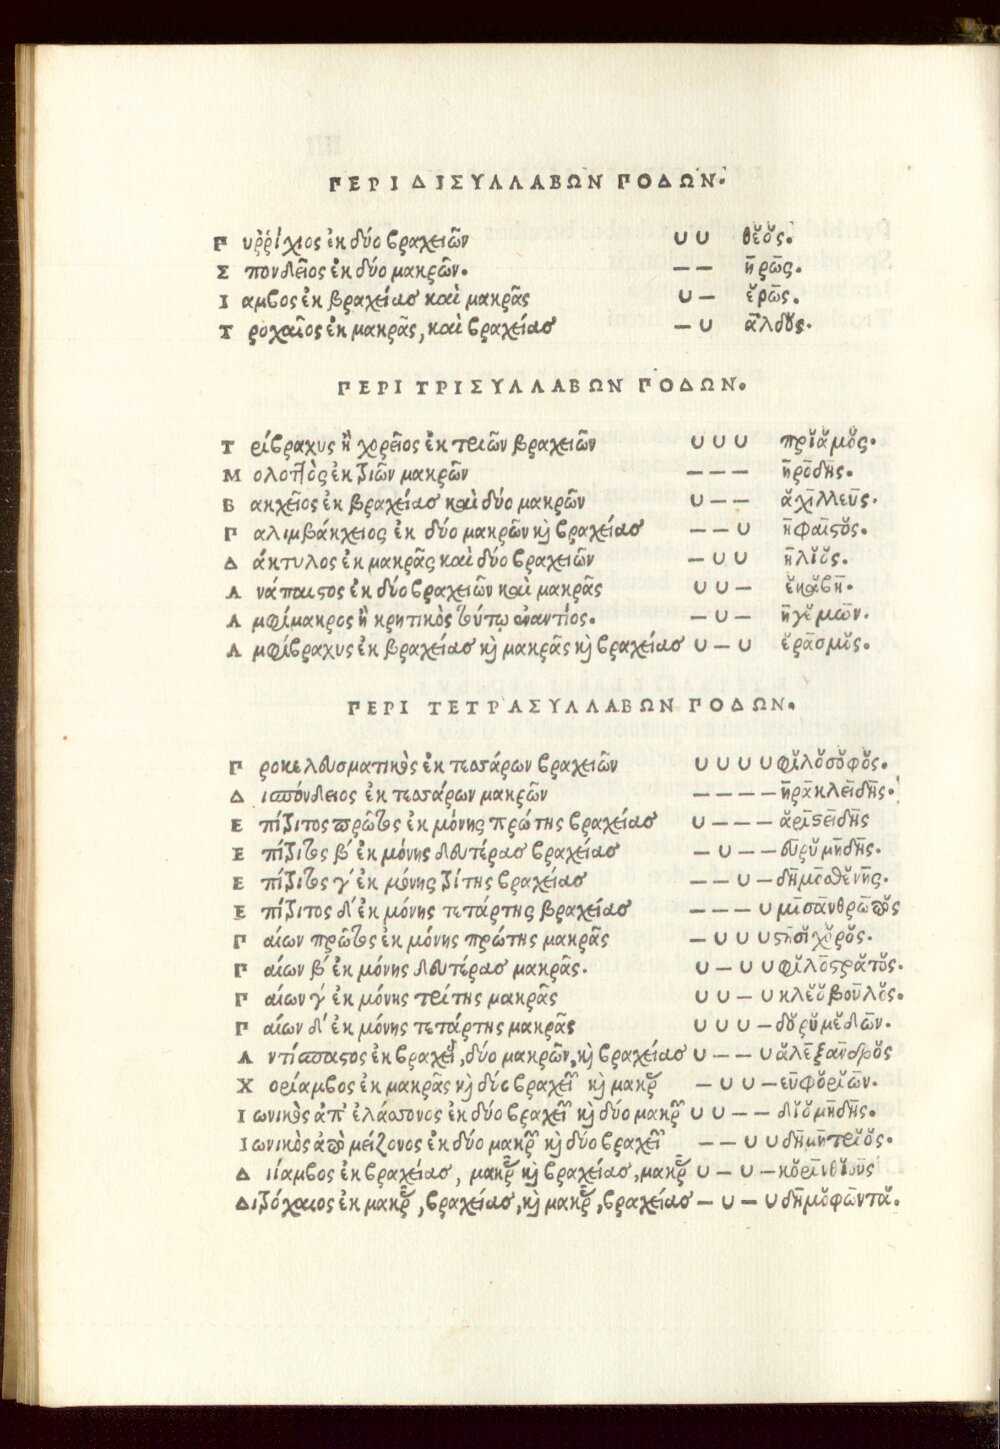 ΠΕΡΙ ΔΙΣΥΛΛΑΒΩΝ ΠΟΔΩΝ.
Πυῤῥίχιος ἐκ δύο βραχειῶν ∪ ∪ θεός.
Σπονδεῖος ἐκ δύο μακρῶν. – – ἥρως.
Ιαμβος ἐκ βραχείας καὶ μακρᾶς ∪ – ἔρως.
Τροχαῖος ἐκ μακρᾶς, καὶ βραχείας – ∪ ἄλδος.
ΠΕΡΙ ΤΡΙΣΥΛΛΑΒΩΝ ΠΟΔΩΝ.
Τρίβραχυς ἢ χορεῖος ἐκ τριῶν βραχειῶν ∪ ∪ ∪ πρίαμος.
Μολοττὸς ἐκ τριῶν μακρῶν – – – ἡρώδης.
Βακχεῖος ἐκ βραχείας καὶ δύο μακρῶν ∪ – – ἀχιλλεύς.
Παλιμβάκχειος ἐκ δύο μακρῶν κὶ βραχείας – – ∪ ἥφαιστος.
Δάκτυλος ἐκ μακρᾶς καὶ δύο βραχειῶν – ∪ ∪ ἥλιος.
Ανάπαιστος ἐκ δύο βραχειῶν καὶ μακρᾶς ∪ ∪ – ἑκάβη.
Αμφίμακρος ἢ κρητικὸς τούτῳ ἐναντίος. – ∪ – ἡγεμών.
Αμφίβραχυς ἐκ βραχείας κὶ μακρᾶς κὶ βραχείας ∪ – ∪ ἔρασμις.
ΠΕΡΙ ΤΕΤΡΑΣΥΛΛΑΒΩΝ ΠΟΔΩΝ.
Προκελδυσματικὸς ἐκ τεσσάρων βραχειῶν ∪ ∪ ∪ ∪ φιλόσοφος.
Δισπόνδειος ἐκ τεσσάρων μακρῶν – – – – ἡρακλείδης.
Επίτριτος πρῶτος ἐκ μόνης πρώτης βραχείας ∪ – – – ἀριστείδης
Επίτριτος β΄ ἐκ μόνης δευτέρας βραχείας – ∪ – – εὐρυμήδης.
Επίτριτος γ΄ ἐκ μόνης τρίτης βραχείας – – ∪ – δημοσθένης.
Επίτριτος δ΄ ἐκ μόνης τετάρτης βραχείας – – – ∪ μισάνθρωπος
Παίων πρῶτος ἐκ μόνης πρώτης μακρᾶς – ∪ ∪ ∪ στησίχορος.
Παίων β΄ ἐκ μόνης δευτέρας μακρᾶς. ∪ – ∪ ∪ φιλόστρατος.
Παίων γ΄ ἐκ μόνης τρίτης μακρᾶς ∪ ∪ – ∪ κλεόβουλος.
Παίων δ΄ ἐκ μόνης τετάρτης μακρᾶς ∪ ∪ ∪ – δορυμέδων.
Αντίσπαστος ἐκ βραχεί, δύο μακρῶν, κὶ βραχείας ∪ – – ∪ ἀλέξανδρος
Χορίαμβος ἐκ μακρᾶς κὶ δύο βραχειῶν κὶ μακρᾶς – ∪ ∪ – εὐφορίων.
Ιωνικὸς ἀπ' ἐλάσσονος ἐκ δύο βραχειῶν κὶ δύο μακρῶν ∪ ∪ – – διομήδης.
Ιωνικὸς ἀπὸ μείζονος ἐκ δύο μακρῶν κὶ δύο βραχειῶν – – ∪ ∪ δημήτριος.
Διίαμβος ἐκ βραχείας, μακρᾶς κὶ βραχείας, μακρᾶς ∪ – ∪ – κορίνθιους
Διτρόχαιος ἐκ μακρᾶς, βραχείας, κὶ μακρᾶς, βραχείας – ∪ – ∪ δημοφῶντα.